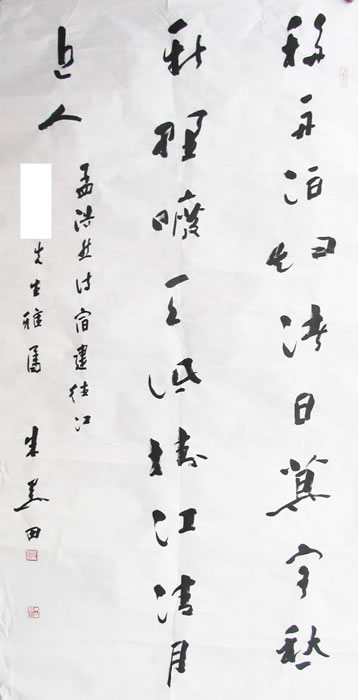 移舟泊烟渚日暮客愁
新野曠天低樹江清月
近人
孟浩然詩宿建德江
先生雅屬 朱關田